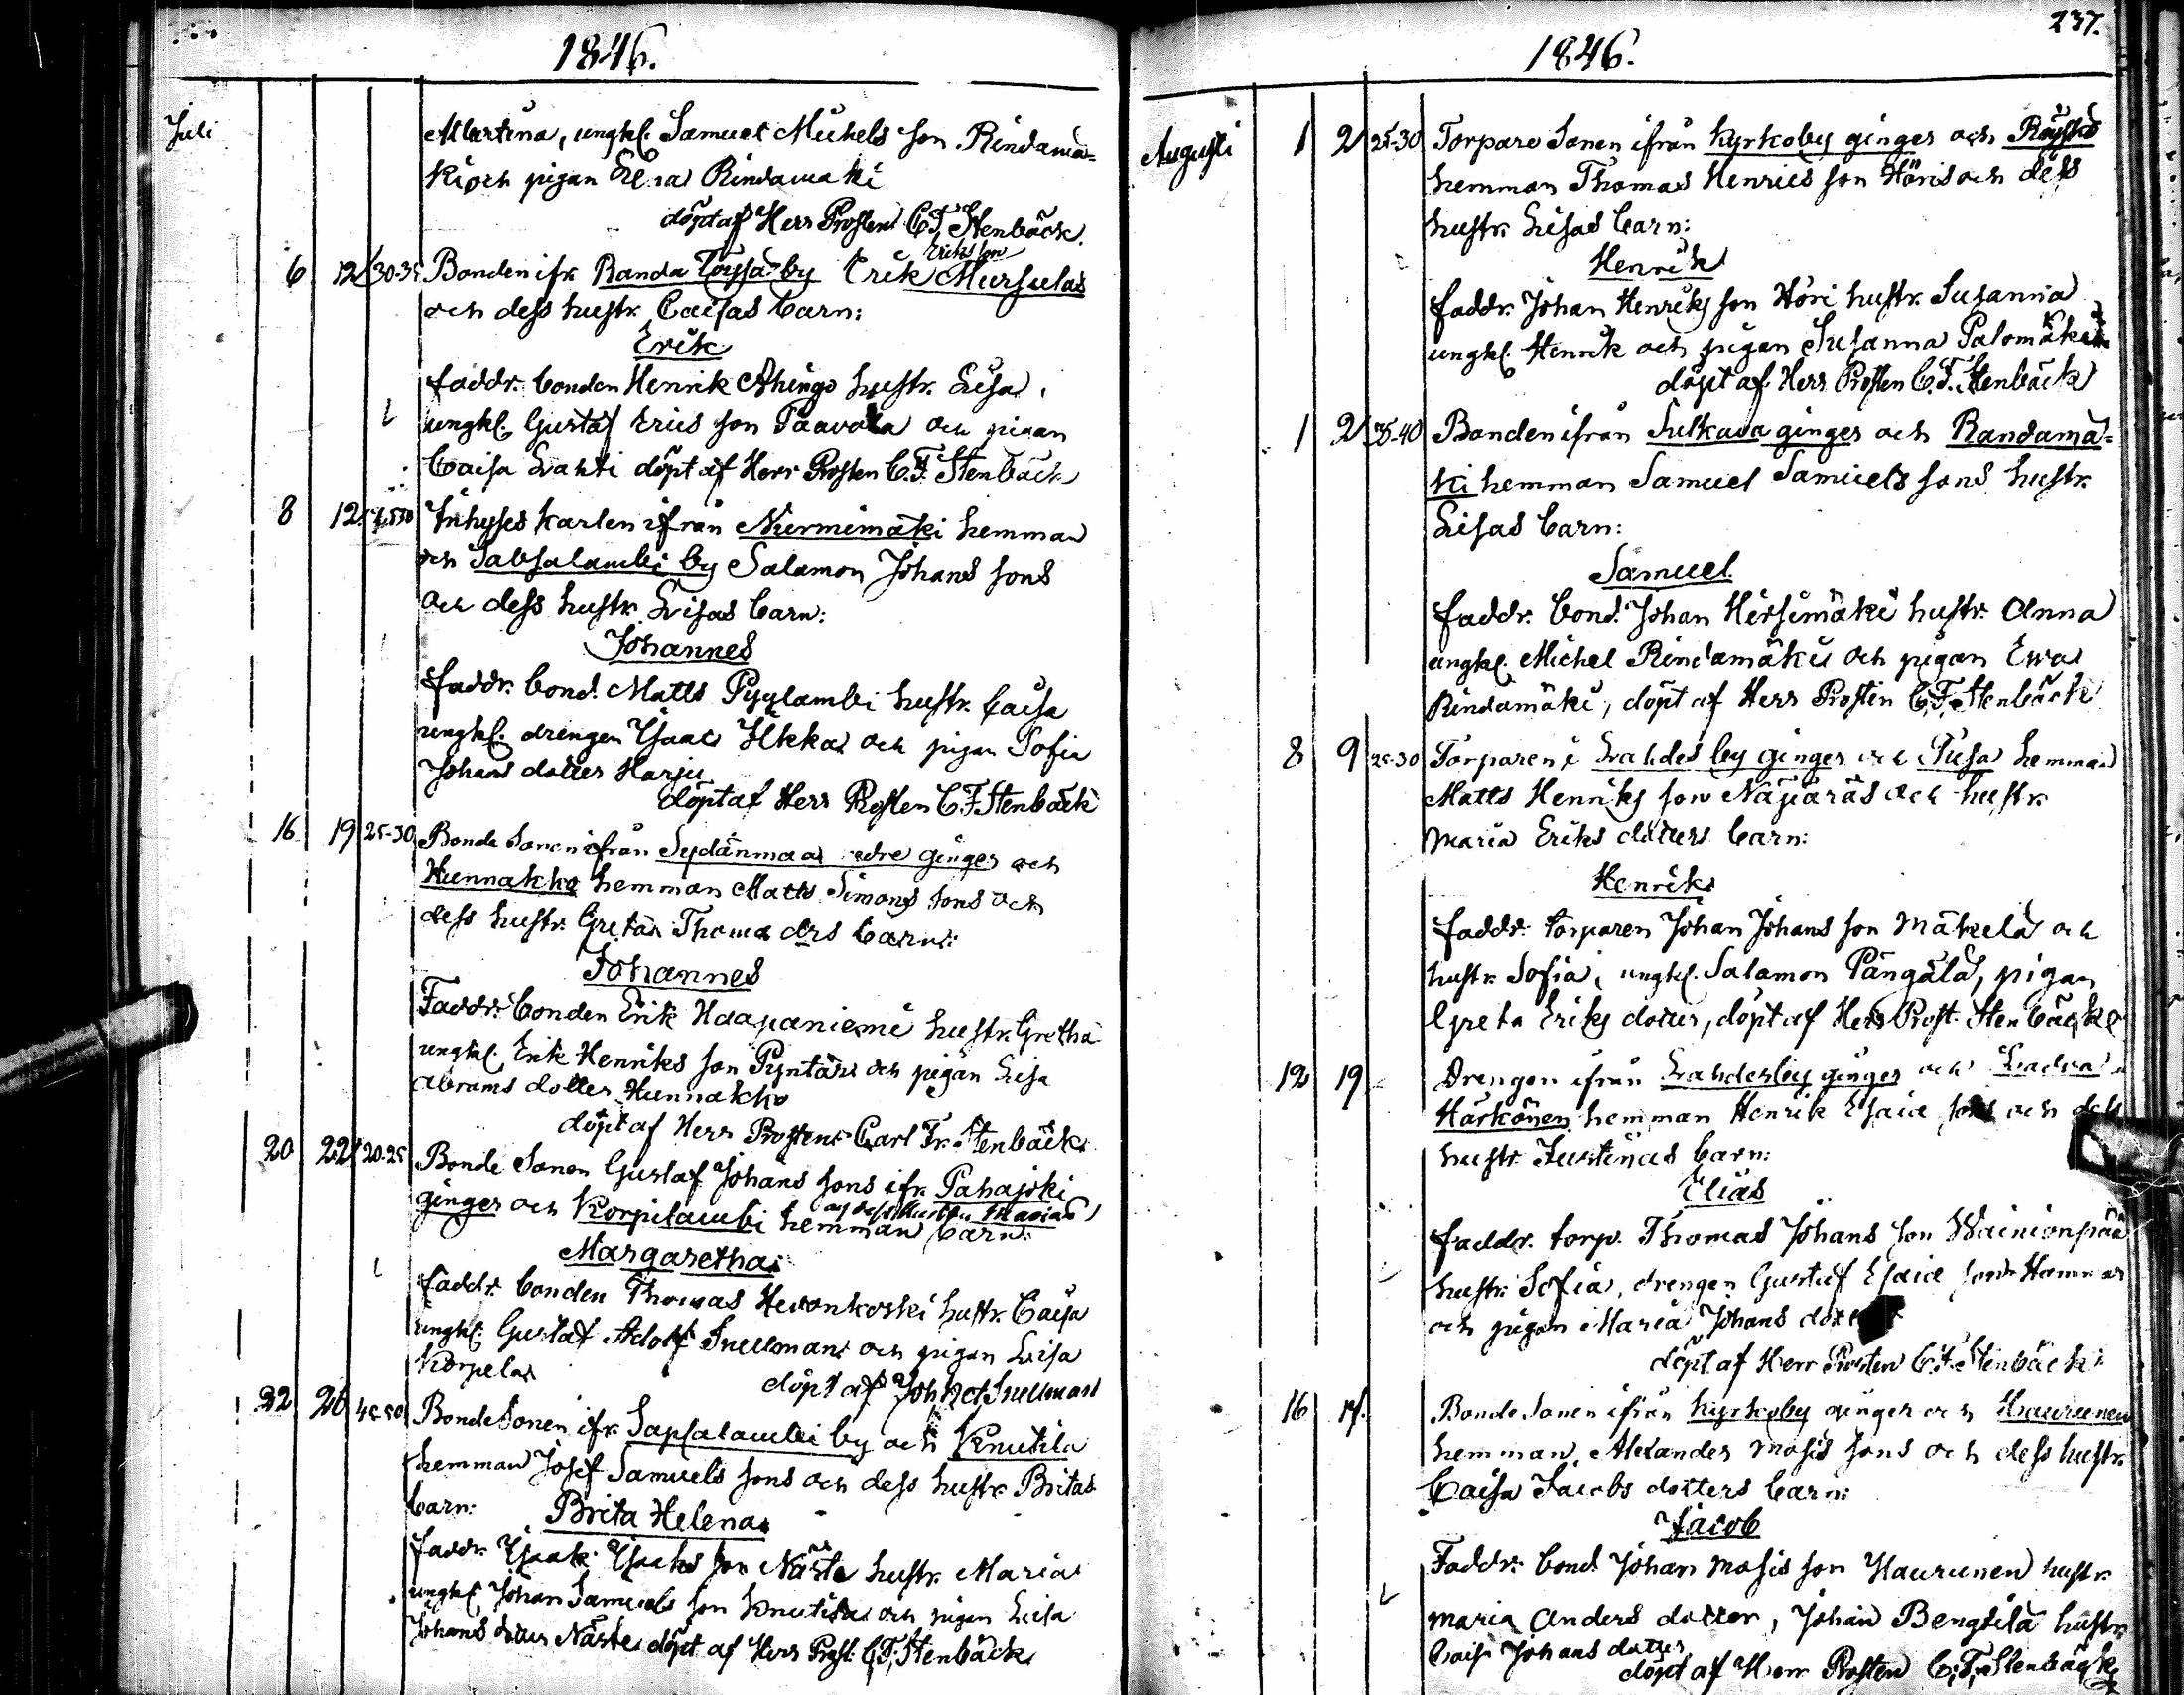 1846.
Juli
Martina, ungkl. Samuel Michels son Rindamä-
ki och pigan Lena Rindamaki
döpt af Herr Prosten C.F. Stenbäck.
Eriks son
6 12 30-35 Bonden ifr. Randa Töysä by Erik Mursulas
och dess hustr. Caisas barn:
Erik
faddr. bonden Henrik Ahingo hustr. Lisa,
ungkl. Gustaf Erics son Paavola och pigan
Caisa Lahti döpt af Herr Prosten C.F. Stenbäck
8 12 Inhyses karlen ifrån Nurmimäki hemman
och Sabsalambi by Salamon Johans sons
och dess hustr. Lisas barn:
Johannes
faddr. bond. Matts Pyylambi hustr. Caisa
ungkl. drengen Isaac Ilkka och pigan Sofia
Johans dotter Harju
döpt af Herr Prosten C.F. Stenbäck
16 19 25-30 Bonde Sonen ifrån Sydänmaa edre ginges och
Hunnakko hemman Matts Simons sons och
dess hustr. Greta Thoma drs barn:
Johannes
Faddr. bonden Erik Haapaniemi hustr. Gretha
ungkl. Erik Henriks son Pyntäri och pigan Lisa
Abrams dotter Hunnakko
döpt af Herr Prosten Carl Fr. Stenbäck
20 22 20-25 Bonde Sonen Gustaf Johans sons ifr. Pahajoki
ginges och Korpilambi hemman barn:
och dess hustru Marias
Margaretha
faddr. bonden Thomas Hevonkoski hustr. Caisa
ungkl. Gustaf Adolf Snellman och pigan Lisa
Korpela
döpt af Joh Snellman
22 26 45-50 Bonde Sonen ifr. Sapsalambi by och Knutila
hemman Josef Samuels sons och dess hustr. Britas
barn: Brita Helena
faddr. Isaak Isaks son Näste hustr. Maria
ungkl. Johan Samuels son Knutila och pigan Lisa
Johans dotter Näste döpt af Herr Prost. C.F. Stenbäck
237.
1846.
Augusti 1 2 25-30 Torpare Sonen ifrån Kyrkoby ginges och Röyskö
hemman Thomas Henrics son Höris och dess
hustr. Lisas barn:
Henrik
faddr. Johan Henriks son Höri hustr. Susanna
ungkl. Henrik och pigan Susanna Palomäki
döpt af Herr Prosten C.F. Stenbäck
1 2 35-40 Bonden ifrån Sulkava ginges och Randamä-
ki hemman Samuel Samuels sons hustr.
Lisas barn:
Samuel
faddr. bond. Johan Hirsimäki hustr. Anna
ungkl. Michel Rindamäki och pigan Ewa
Rindamäki, döpt af Herr Prosten C.F. Stenbäck
8 9 25-30 Torparen i Lahdes by ginges och Tusa hemman
Matts Henriks son Näpäräs och hustr.
Maria Eriks dotters barn:
Henrik
faddr. torparen Johan Johans son Mäkelä och
hustr. Sofia, ungkl. Salamon Pängälä, pigan
Greta Eriks dotter, döpt af Herr Prost. Stenbäck
12 19 Drengen ifrån Lahdesby ginges och Ladva
Härkönen hemman Henrik Esaiæ sons och dess
hustr. Justinas barn:
Elias
faddr. torp. Thomas Johans son Wainionpää
hustr. Sofia, drengen Gustaf Esaiæ son
och pigan Maria Johans dotter
döpt af Herr Prosten C.F. Stenbäck
16 17. Bonde Sonen ifrån Kyrkoby ginges och Haurunen
hemman, Alexander Mosis sons och dess hustr.
Caisa Jacobs dotters barn:
Jacob
Faddr. bond. Johan Mosis son Haurunen hustr.
Maria Anders dotter, Johan Bengtilä hustr.
Caisa Johans dotter
döpt af Herr Prosten C.F. Stenbäck